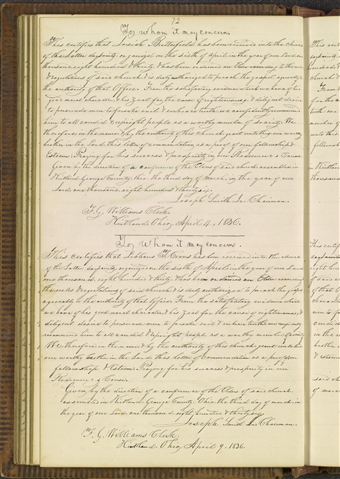 72
To whom it may concern
This certifies that Josiah Butterfield has been received into the church
of the Latter day saints, organized on the sixth of April in the year of our Lord one
thousand, eight hundred & thirty & has been ordained an Elder according to the
regulations of said church & is duly authorized to preach the gospel agreeably to
the authority of that office. From the satisfactory evidence which we have of his
good moral character, & his zeal for the cause of righteousness, & diligent desire
to persuade men to forsake evil & embrace truth, we confidently recommend
him to all candid & upright people as a worthy member of society. We
therefore in the name & by the authority of this church grant unto this our worthy
brother in the Lord, this letter of commendation as a proof of our fellowship &
esteem: Praying for his success & prosperity in our Redeemer's Cause
Given by the direction of a conference of the Elders of said church assembled in
Kirtland Geauga County, Ohio the third day of March, in the year of our
Lord, one thousand, eight hundred & thirty six.
Joseph Smith Jr. Chairman.
F. G. Williams Clerk.
Kirtland Ohio, April 4, 1836.
To Whom it may concern.
This Certifies that Evans has been received into the church
of the Latter day saints, organized on the sixth of April in the year of our Lord
one thousand, eight hundred & thirty & has been ordained an Elder according
to the regulations of said church & is duly authorized to preach the gospel
agreeably to the authority of that office. From the satisfactory evidence which
we have of his good moral character, & his zeal for the cause of righteousness, &
diligent desire to persuade men to forsake evil & embrace truth, we confidently
recommend him to all candid & upright people as a worthy member of society.
We therefore in the name & by the authority of this church grant unto this
our worthy brother in the Lord, this letter of commendation as a proof of our
fellowship & esteem: Praying for his success & prosperity in our
Redeemer's Cause.
Given by the direction of a conference of the Elders of said church
assembled in Kirtland Geauga County Ohio the third day of March in
the year of our Lord one thousand eight hundred & thirty six.
Joseph Smith Jr. Chairman.
F. G. Williams Clerk.
Kirtland, Ohio, April 9, 1836.